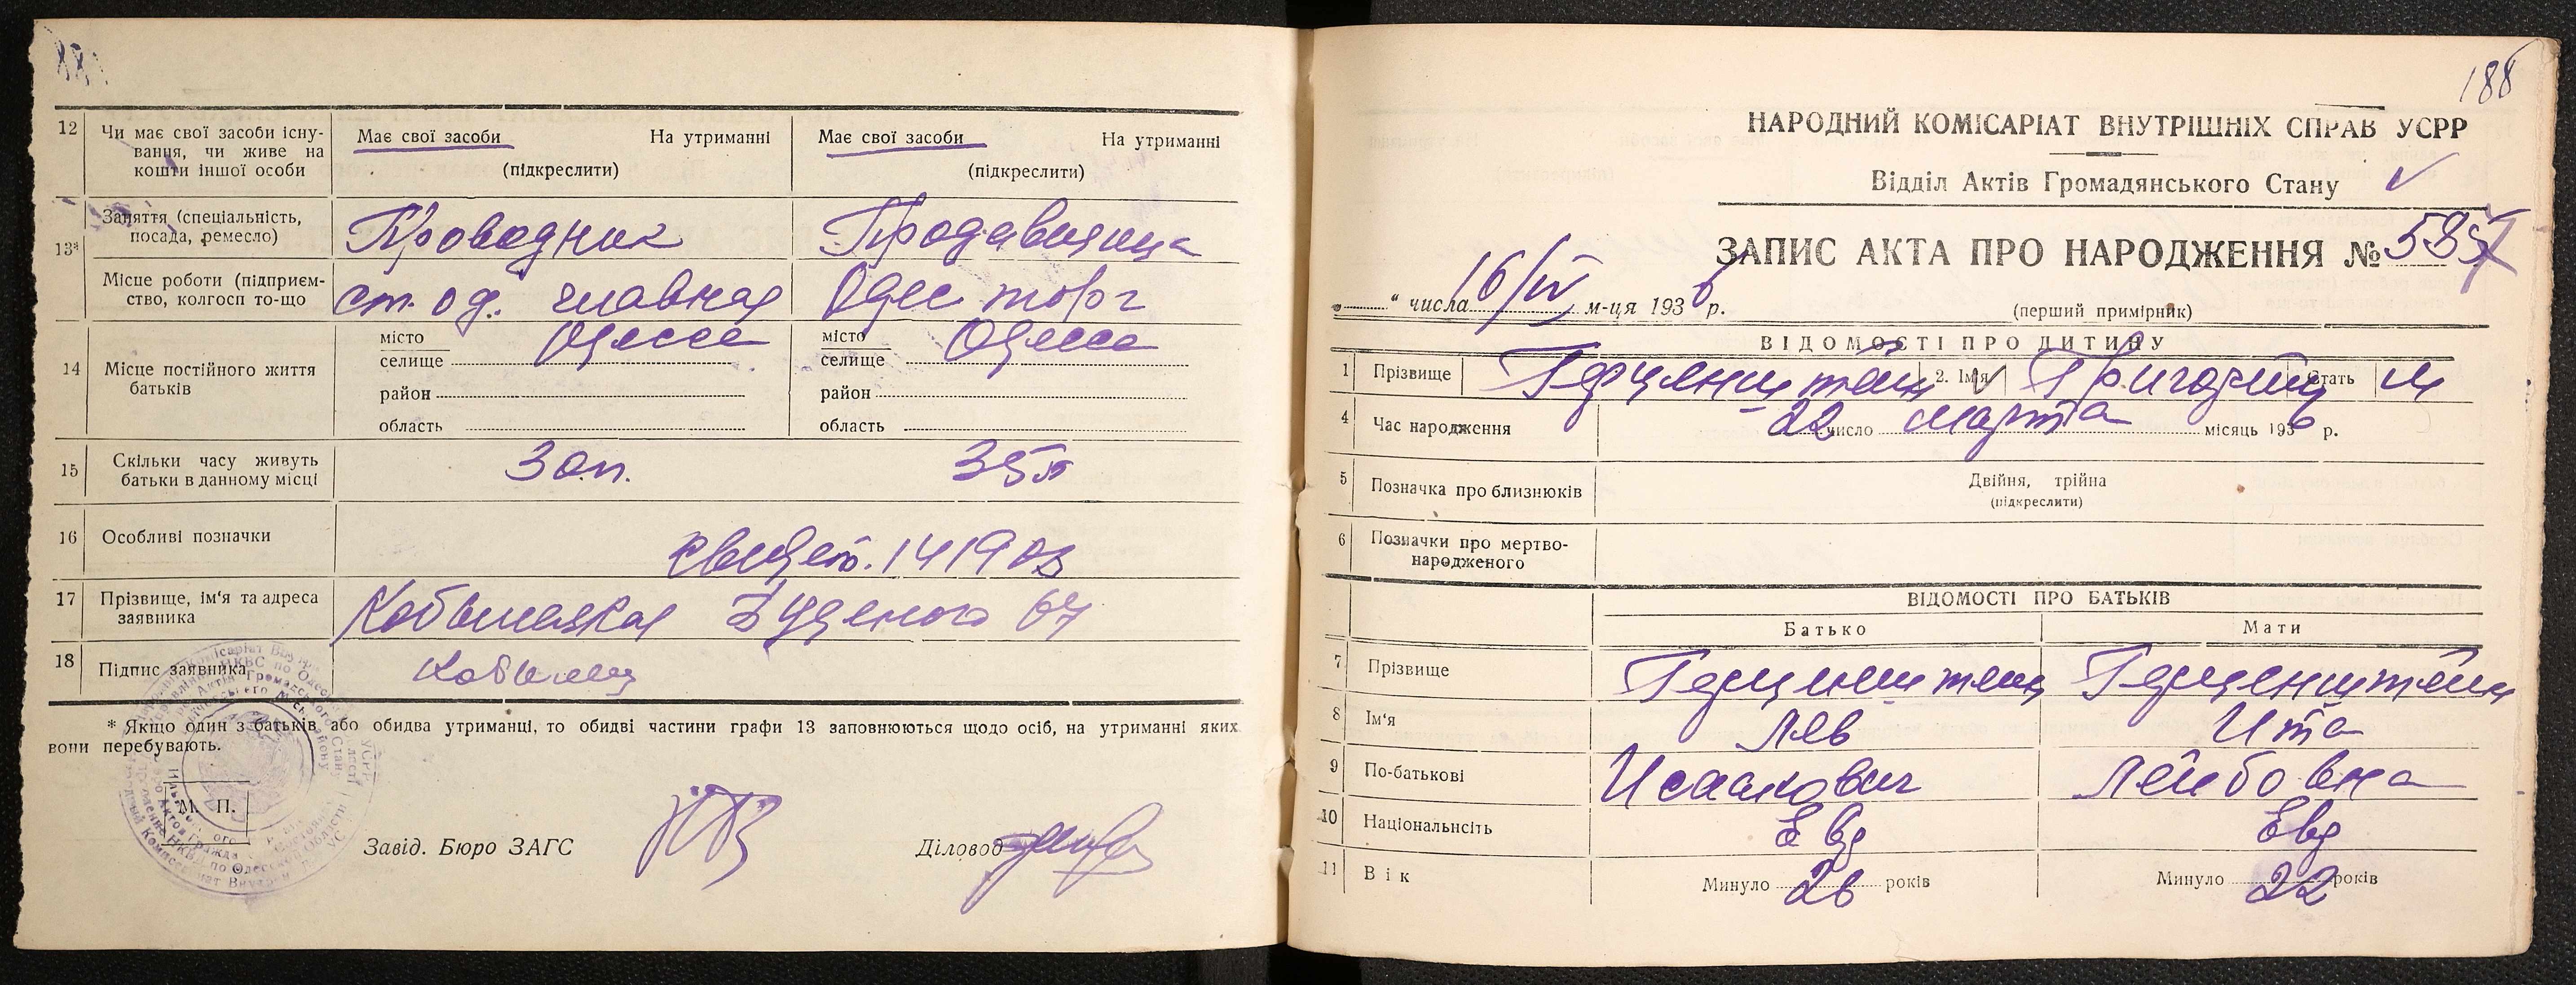 12 Чи має свої засоби існу-
вання, чи живе на
кошти іншої особи
Має свої засоби На утриманні
(підкреслити)
Має свої засоби На утриманні
(підкреслити)
13* Заняття (спеціальність,
посада, ремесло)
Проводник
Продавщица
Місце роботи (підприєм-
ство, колгосп то-що
ст. Од. главная
Одес торг
14 Місце постійного життя
батьків
місто
селище Одесса
район
область
місто
селище Одесса
район
область
15 Скільки часу живуть
батьки в данному місці
16 Особливі позначки
17 Прізвище, ім'я та адреса
заявника
Буденого 67
18 Підпис заявника
* Якщо один з батьків або обидва утриманці, то обидві частини графи 13 заповнюються щодо осіб, на утриманні яких
вони перебувають.
М. П.
Завід. Бюро ЗАГС
Діловод
188
НАРОДНИЙ КОМІСАРІАТ ВНУТРІШНІХ СПРАВ УСРР
Відділ Актів Громадянського Стану
ЗАПИС АКТА ПРО НАРОДЖЕННЯ №
„ “ числа 16/IV м-ця 1936 р.
(перший примірник)
ВІДОМОСТІ ПРО ДИТИНУ
1 Прізвище Герценштейн 2. Ім'я Григорий Стать м
4 Час народження 22 число марта місяць 1936 р.
5 Позначка про близнюків
Двійня, трійна
(підкреслити)
6 Позначки про мертво-
народженого
ВІДОМОСТІ ПРО БАТЬКІВ
Батько Мати
7 Прізвище Герценштейн Герценштейн
8 Ім'я Лев Ита
9 По-батькові Исаакович Лейбовна
10 Національнсіть Евр Евр
11 Вік Минуло 26 років Минуло 22 років